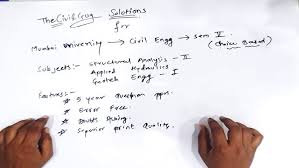 The Civil Guy Solutions
for
Mumbai University → Civil Engg → Sem V
(Choice Based)
Subjects:- Structural Analysis - II
Applied Hydraulics
Geotech Engg - I
Features:-
* 5 year question pprs.
* Error Free.
* Doubts Asking.
* Superior print Quality.